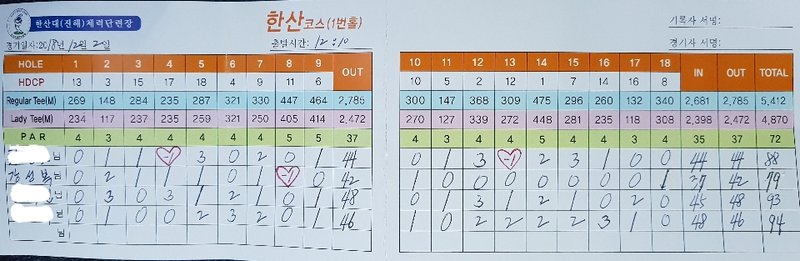 한산대(진해)체력단련장
한산코스(1번홀)
기록사 서명:
경기일자:2018년 12월 2일
출발시간: 12:10
경기사 서명:
HOLE 1 2 3 4 5 6 7 8 9 OUT 10 11 12 13 14 15 16 17 18 IN OUT TOTAL
HDCP 13 3 15 17 18 4 9 11 6 10 5 2 12 1 7 14 17 16 8
Regular Tee(M) 269 148 284 235 287 321 330 447 464 2,785 300 147 368 309 475 296 260 132 340 2,681 2,785 5,412
Lady Tee(M) 234 117 237 235 259 321 250 405 414 2,472 270 127 339 272 448 281 235 118 308 2,398 2,472 4,870
PAR 4 3 4 4 4 4 4 5 5 37 4 3 4 4 5 4 4 3 4 35 37 72
님 0 1 1 -1 3 0 2 0 1 44 0 1 3 -1 2 3 1 0 0 44 44 88
님 0 2 1 1 1 0 1 -1 0 42 1 0 0 0 0 0 0 0 1 37 42 79
님 0 3 0 3 1 2 1 0 1 48 0 1 3 1 2 1 0 2 0 45 48 93
님 0 1 0 0 2 3 2 0 1 46 1 0 2 2 2 2 3 1 0 48 46 94
님